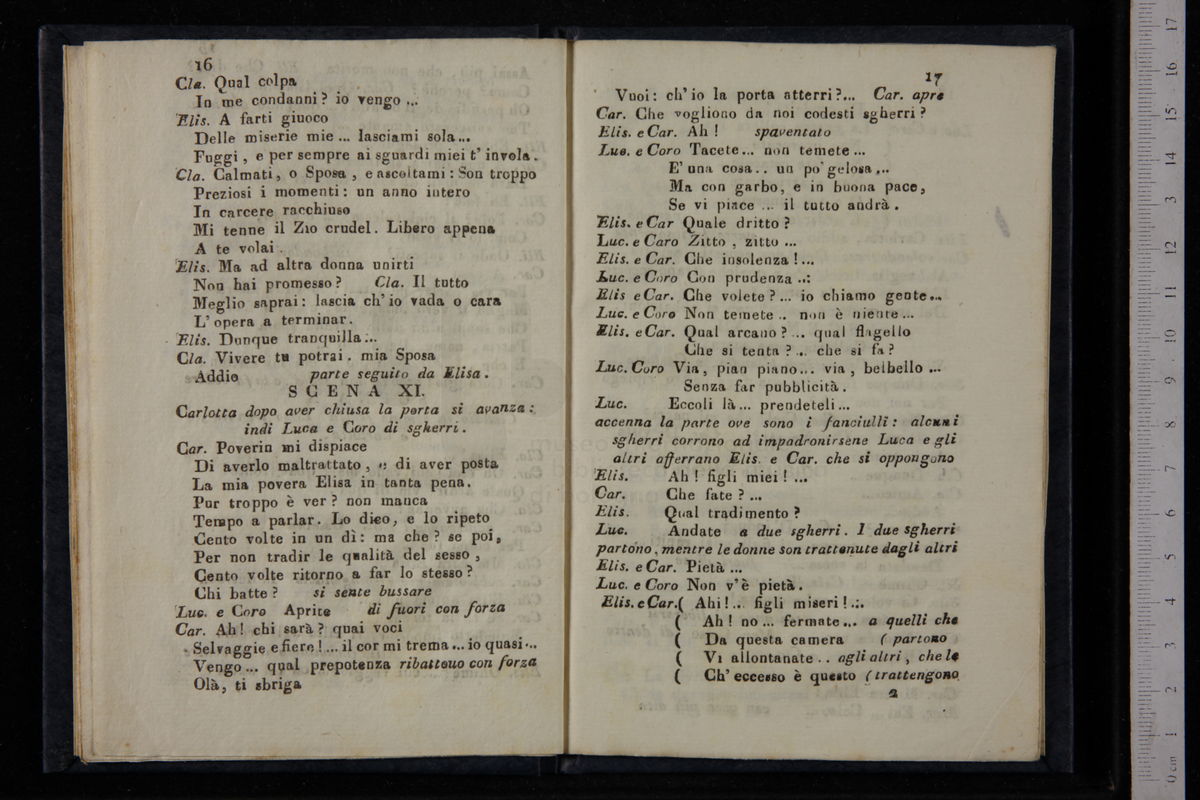 16
Cla. Qual colpa
In me condanni? io vengo ...
Elis. A farti giuoco
Delle miserie mie ... lasciami sola...
Fuggi, e per sempre ai sguardi miei t' invola.
Cla. Calmati, o Sposa, e ascoltami: Son troppo
Preziosi i momenti: un anno intero
In carcere racchiuso
Mi tenne il Zio crudel. Libero appena
A te volai.
Elis. Ma ad altra donna unirti
Non hai promesso? Cla. Il tutto
Meglio saprai: lascia ch' io vada o cara
L' opera a terminar.
Elis. Dunque tranquilla...
Cla. Vivere tu potrai, mia Sposa
Addio parte seguito da Elisa.
SCENA XI.
Carlotta dopo aver chiusa la porta si avanza:
indi Luca e Coro di sgherri.
Car. Poverin mi dispiace
Di averlo maltrattato, e di aver posta
La mia povera Elisa in tanta pena.
Pur troppo è ver? non manca
Tempo a parlar. Lo dico, e lo ripeto
Cento volte in un dì: ma che? se poi,
Per non tradir le qualità del sesso,
Cento volte ritorno a far lo stesso?
Chi batte? si sente bussare
Luc. e Coro Aprite di fuori con forza
Car. Ah! chi sarà? quai voci
Selvaggie e fiere!... il cor mi trema... io quasi...
Vengo... qual prepotenza ribattono con forza
Olà, ti sbriga
17
Vuoi: ch' io la porta atterri?... Car. apre
Car. Che vogliono da noi codesti sgherri?
Elis. e Car. Ah! spaventato
Luc. e Coro Tacete... non temete...
E' una cosa.. un po' gelosa...
Ma con garbo, e in buona pace,
Se vi piace ... il tutto andrà.
Elis. e Car Quale dritto?
Luc. e Caro Zitto, zitto ...
Elis. e Car. Che insolenza!...
Luc. e Coro Con prudenza ..:
Elis e Car. Che volete?... io chiamo gente...
Luc. e Coro Non temete.. non è niente...
Elis. e Car. Qual arcano?... qual flagello
Che si tenta?... che si fa?
Luc. Coro Via, pian piano... via, belbello ...
Senza far pubblicità.
Luc. Eccoli là... prendeteli...
accenna la parte ove sono i fanciulli: alcuni
sgherri corrono ad impadronirsene Luca e gli
altri afferrano Elis. e Car. che si oppongono
Elis. Ah! figli miei! ...
Car. Che fate? ...
Elis. Qual tradimento?
Luc. Andate a due sgherri. I due sgherri
partono, mentre le donne son trattenute dagli altri
Elis. e Car. Pietà ...
Luc. e Coro Non v' è pietà.
Elis. e Car.( Ahi!... figli miseri!.:.
( Ah! no... fermate... a quelli che
( Da questa camera ( partono
( Vi allontanate.. agli altri, che le
( Ch' eccesso è questo ( trattengono
2